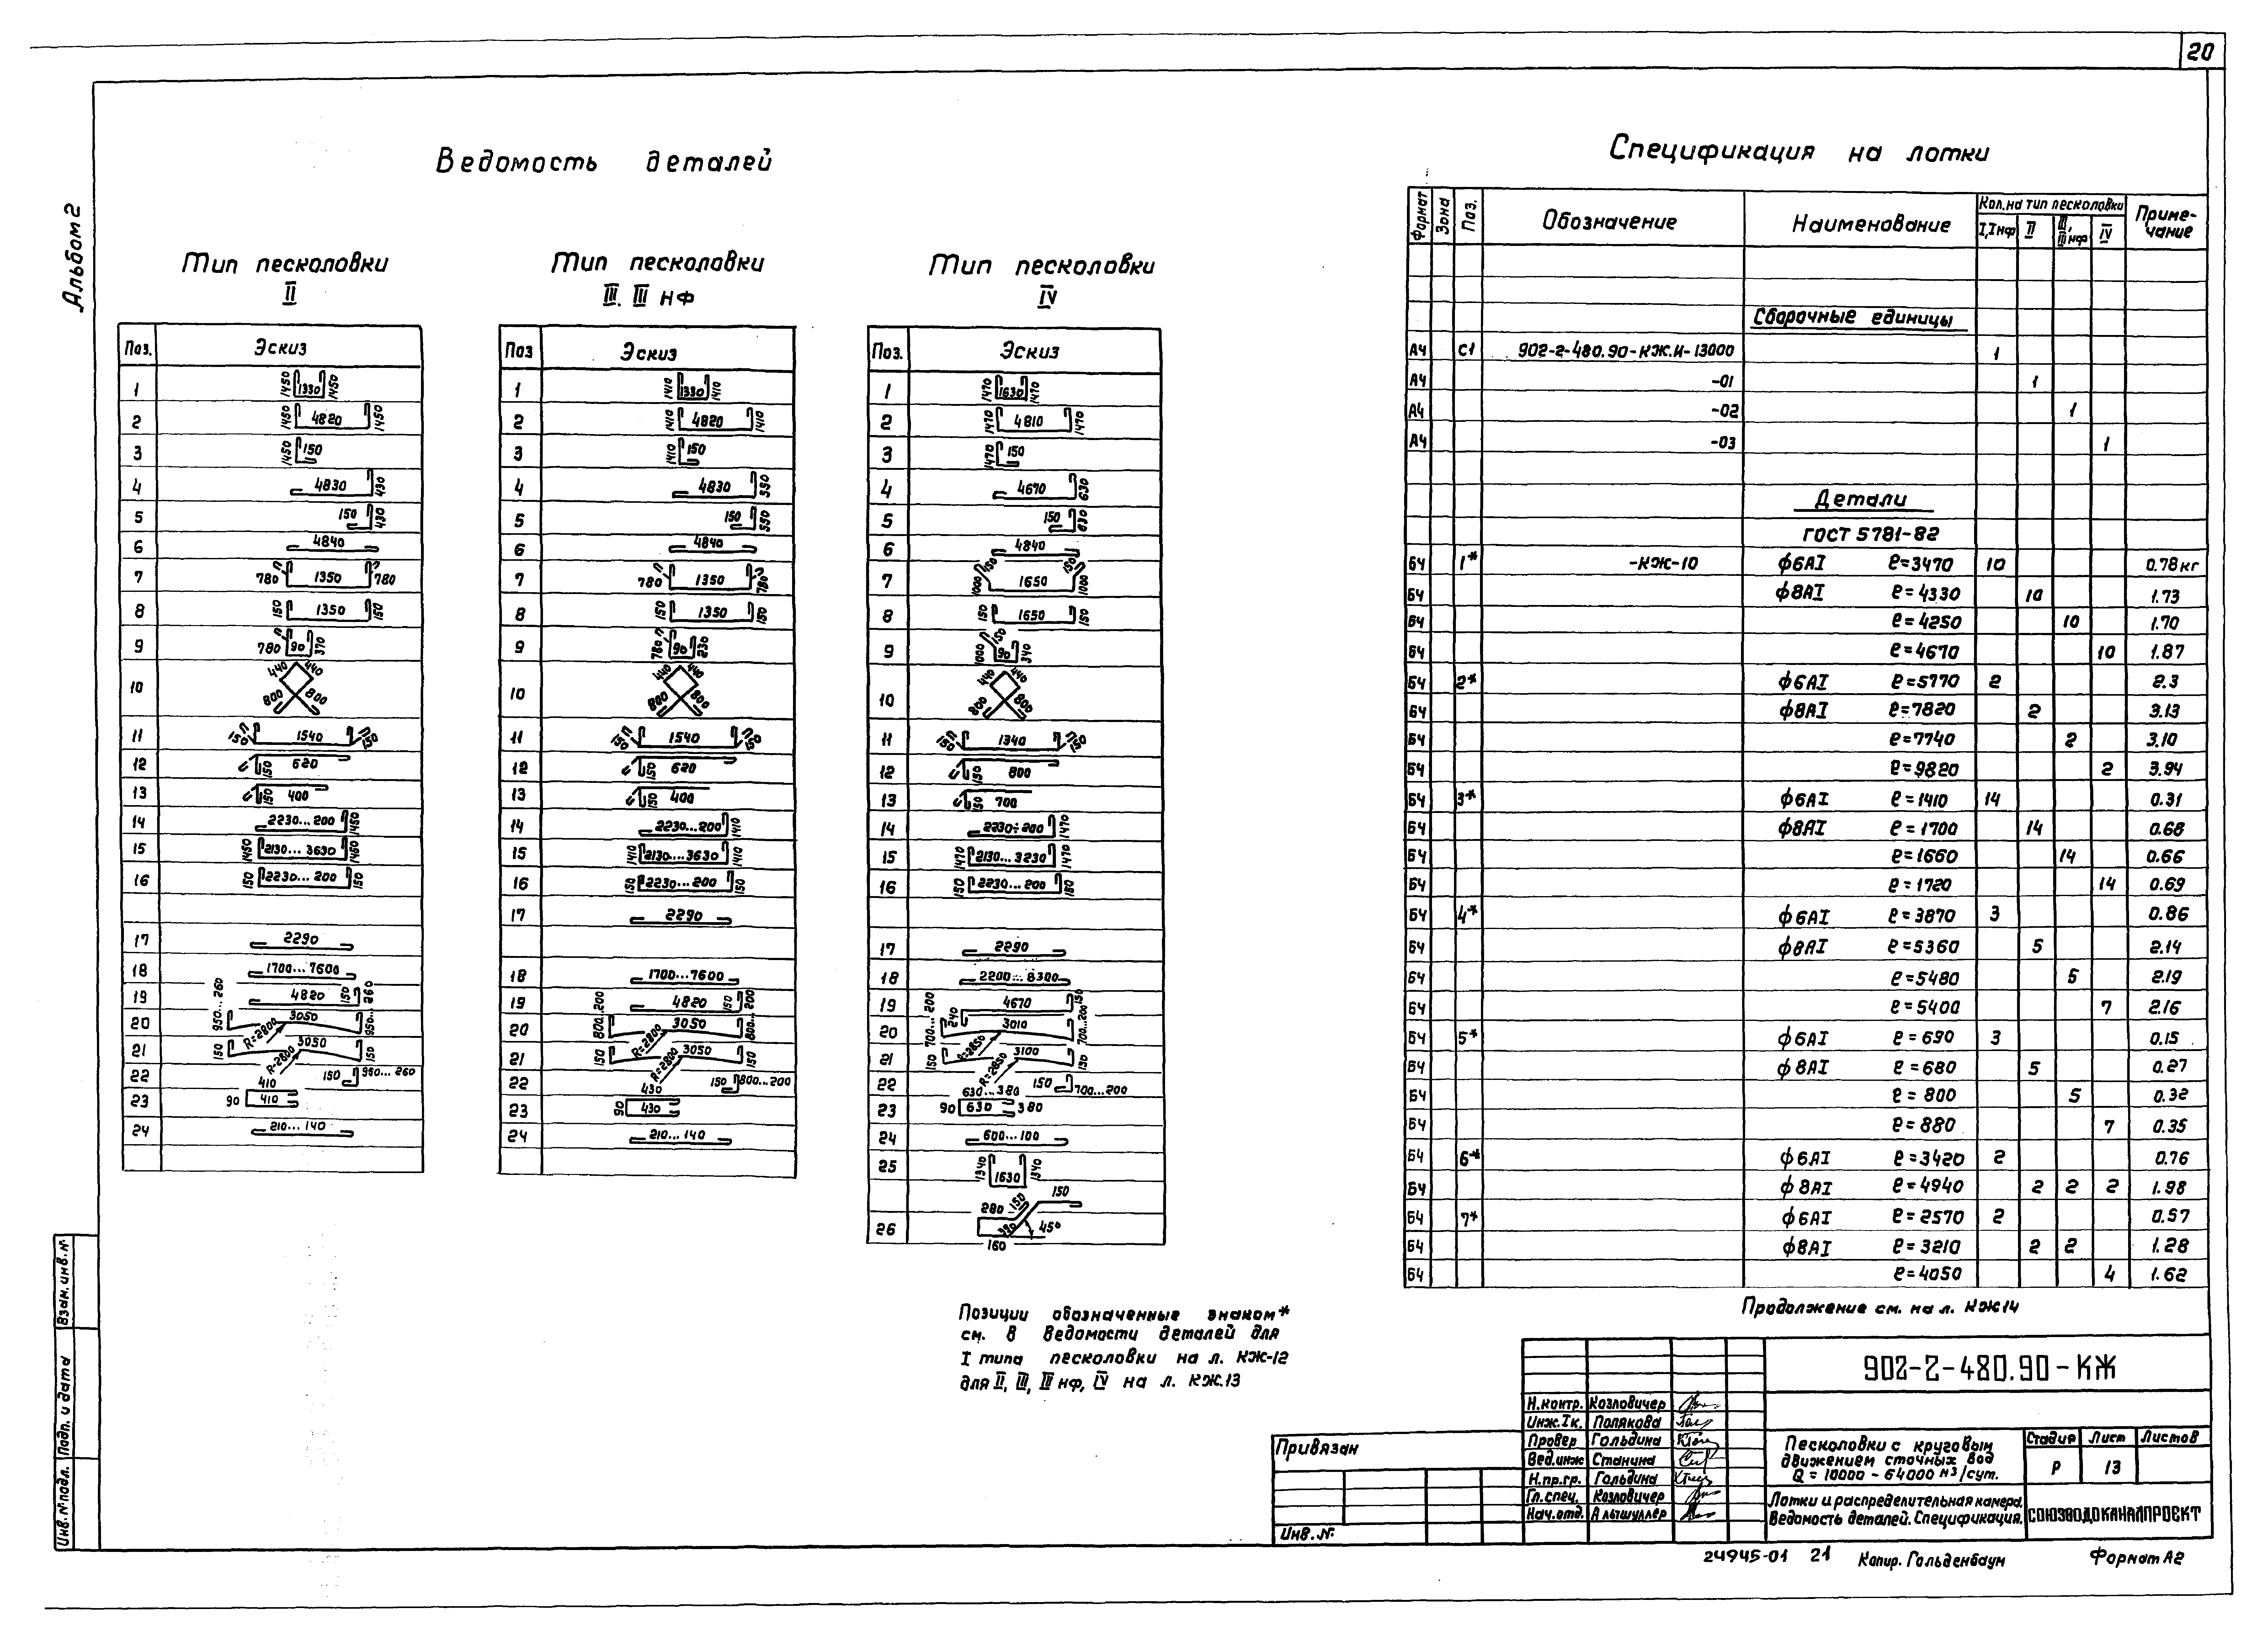 20
Альбом 2
Ведомость деталей
Тип песколовки
II
Поз. Эскиз
1 1450 1330 1450
2 1450 4820 1450
3 1450 150
4 4830 430
5 150 430
6 4840
7 780 1350 780
8 150 1350 150
9 780 90 370
10 440 440 800 800
11 150 1540 150
12 150 620
13 150 400
14 2230...200 1450
15 1450 2130...3630 1450
16 150 2230...200 150
17 2290
18 1700...7600
19 4820 150 260
20 950...260 3050 R=2800 950...
21 150 3050 R=2800 150
22 150 950...260
23 410 90 410
24 210...140
Тип песколовки
III. III нф
Поз Эскиз
1 1410 1330 1410
2 1410 4820 1410
3 1410 150
4 4830 550
5 150 550
6 4840
7 780 1350 780
8 150 1350 150
9 780 90 230
10 440 440 800 800
11 150 1540 150
12 150 620
13 150 400
14 2230...200 1410
15 1410 2130...3630 1410
16 150 2230...200 150
17 2290
18 1700...7600
19 4820 150 200
20 800...200 3050 R=2800 800...
21 150 3050 R=2800 150
22 150 800...200
23 430 90 430
24 210...140
Тип песколовки
IV
Поз. Эскиз
1 1470 1630 1470
2 1470 4810 1470
3 1470 150
4 4670 630
5 150 630
6 4840
7 1000 150 1650 150 1000
8 150 1650 150
9 1000 150 90 340
10 440 440 800 800
11 150 1340 150
12 150 800
13 150 700
14 2230÷200 1470
15 1470 2130...3230 1470
16 150 2230...200 180
17 2290
18 2200...8300
19 240 4670 150
20 700...200 3010 R=2850 700...200
21 150 3100 R=2850 150
22 150 700...200
23 630...380 90 630 380
24 600...100
25 1340 1630 1340
26 280 150 150 390 45° 160
Позиции обозначенные знаком*
см. в ведомости деталей для
I типа песколовки на л. КЖ-12
для II, III, III нф, IV на л. КЖ.13
Спецификация на лотки
Формат Зона Поз. Обозначение Наименование Кол. на тип песколовки Приме-
I, I нф II III, III нф IV чание
Сборочные единицы
А4 С1 902-2-480.90-КЖ.И-13000 1
А4 -01 1
А4 -02 1
А4 -03 1
Детали
ГОСТ 5781-82
БЧ 1* -КЖ-10 ф6АI ℓ=3470 10 0.78кг
БЧ ф8АI ℓ=4330 10 1.73
БЧ ℓ=4250 10 1.70
БЧ ℓ=4670 10 1.87
БЧ 2* ф6АI ℓ=5770 2 2.3
БЧ ф8АI ℓ=7820 2 3.13
БЧ ℓ=7740 2 3.10
БЧ ℓ=9820 2 3.94
БЧ 3* ф6АI ℓ=1410 14 0.31
БЧ ф8АI ℓ=1700 14 0.68
БЧ ℓ=1660 14 0.66
БЧ ℓ=1720 14 0.69
БЧ 4* ф6АI ℓ=3870 3 0.86
БЧ ф8АI ℓ=5360 5 2.14
БЧ ℓ=5480 5 2.19
БЧ ℓ=5400 7 2.16
БЧ 5* ф6АI ℓ=690 3 0.15
БЧ ф8АI ℓ=680 5 0.27
БЧ ℓ=800 5 0.32
БЧ ℓ=880 7 0.35
БЧ 6* ф6АI ℓ=3420 2 0.76
БЧ ф8АI ℓ=4940 2 2 2 1.98
БЧ 7* ф6АI ℓ=2570 2 0.57
БЧ ф8АI ℓ=3210 2 2 1.28
БЧ ℓ=4050 4 1.62
Продолжение см. на л. КЖ14
902-2-480.90-КЖ
Н.контр. Козловичер
Инж.Iк. Полякова
Провер Гольдина
Вед.инж Станина
Н.пр.гр. Гольдина
Гл.спец. Козловичер
Нач.отд. Альтшуллер
Песколовки с круговым
движением сточных вод
Q = 10000 - 64000 м³/сут.
Стадия Лист Листов
Р 13
Лотки и распределительная камера.
Ведомость деталей. Спецификация.
СОЮЗВОДОКАНАЛПРОЕКТ
Привязан
Инв.№
Взам. инв. №
Подп. и дата
Инв.№ подл.
24945-01 21 Копир. Гольденбаум Формат А2